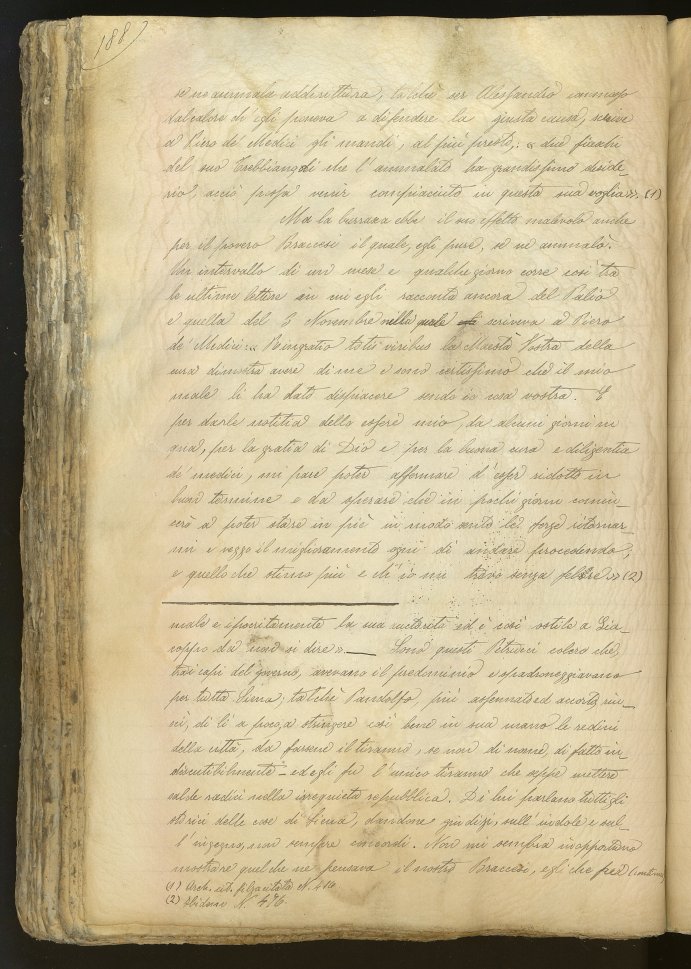 188
se ne ammala addirittura, talchè ser Alessandro commosso
dal calore di egli poneva a difendere la giusta causa, scrive
a Piero de' Medici gli mandi, al più presto,: « due fiaschi
del suo Trebbiano di che l'ammalato ha grandissimo deside-
rio, acciò possa venir compiaciuto in questa sua voglia». (1)
Ma la burrasca ebbe il suo effetto malevolo anche
per il povero Braccesi il quale, egli pure, se ne ammalò.
Un intervallo di un mese e qualche giorno corre così tra
le ultime lettere in cui egli racconta ancora del Palio
e quella del 5 Novembre nella quale scriveva a Piero
de' Medici: « Ringratio totis viribus la Maestà Vostra della
cura dimostra avere di me e sono certissimo che il mio
male li ha dato dispiacere sendo io cosa vostra. E
per darle notitia dello essere mio, da alcuni giorni in
qua, per la gratia di Dio e per la buona cura e diligentia
di medici, mi pare poter affermare d'esser ridotto in
buon termine e da sperare che in pochi giorni comin-
cerò a poter stare in piè in modo sento le forze ritornar-
mi e veggo il miglioramento ogni dì andare procedendo,
e quello che stimo più è ch'io mi trovo senza febbre» (2)
male e ipocritamente la sua autorità ed è così ostile a Gia-
coppo da non si dire». — Sono questi Petrucci coloro che,
tra i capi del governo, avevano il predominio e spadroneggiavano
per tutta Siena, talchè Pandolfo, più assennato ed accorto, riu-
scì, di lì a poco, a stringere così bene in sua mano le redini
della città, da farsene il tiranno, se non di nome, di fatto in-
discutibilmente - ed egli fu l'unico tiranno che seppe mettere
salde radici nella irrequieta repubblica. Di lui parlano tutti gli
storici delle cose di Siena, dandone giudizi, sull'indole e sul-
l'ingegno, non sempre concordi. Non mi sembra inopportuno
mostrare quel che ne pensava il nostro Braccesi, egli che
(1) Arch. cit. filza citata N. 410
(2) Ibidem N. 476